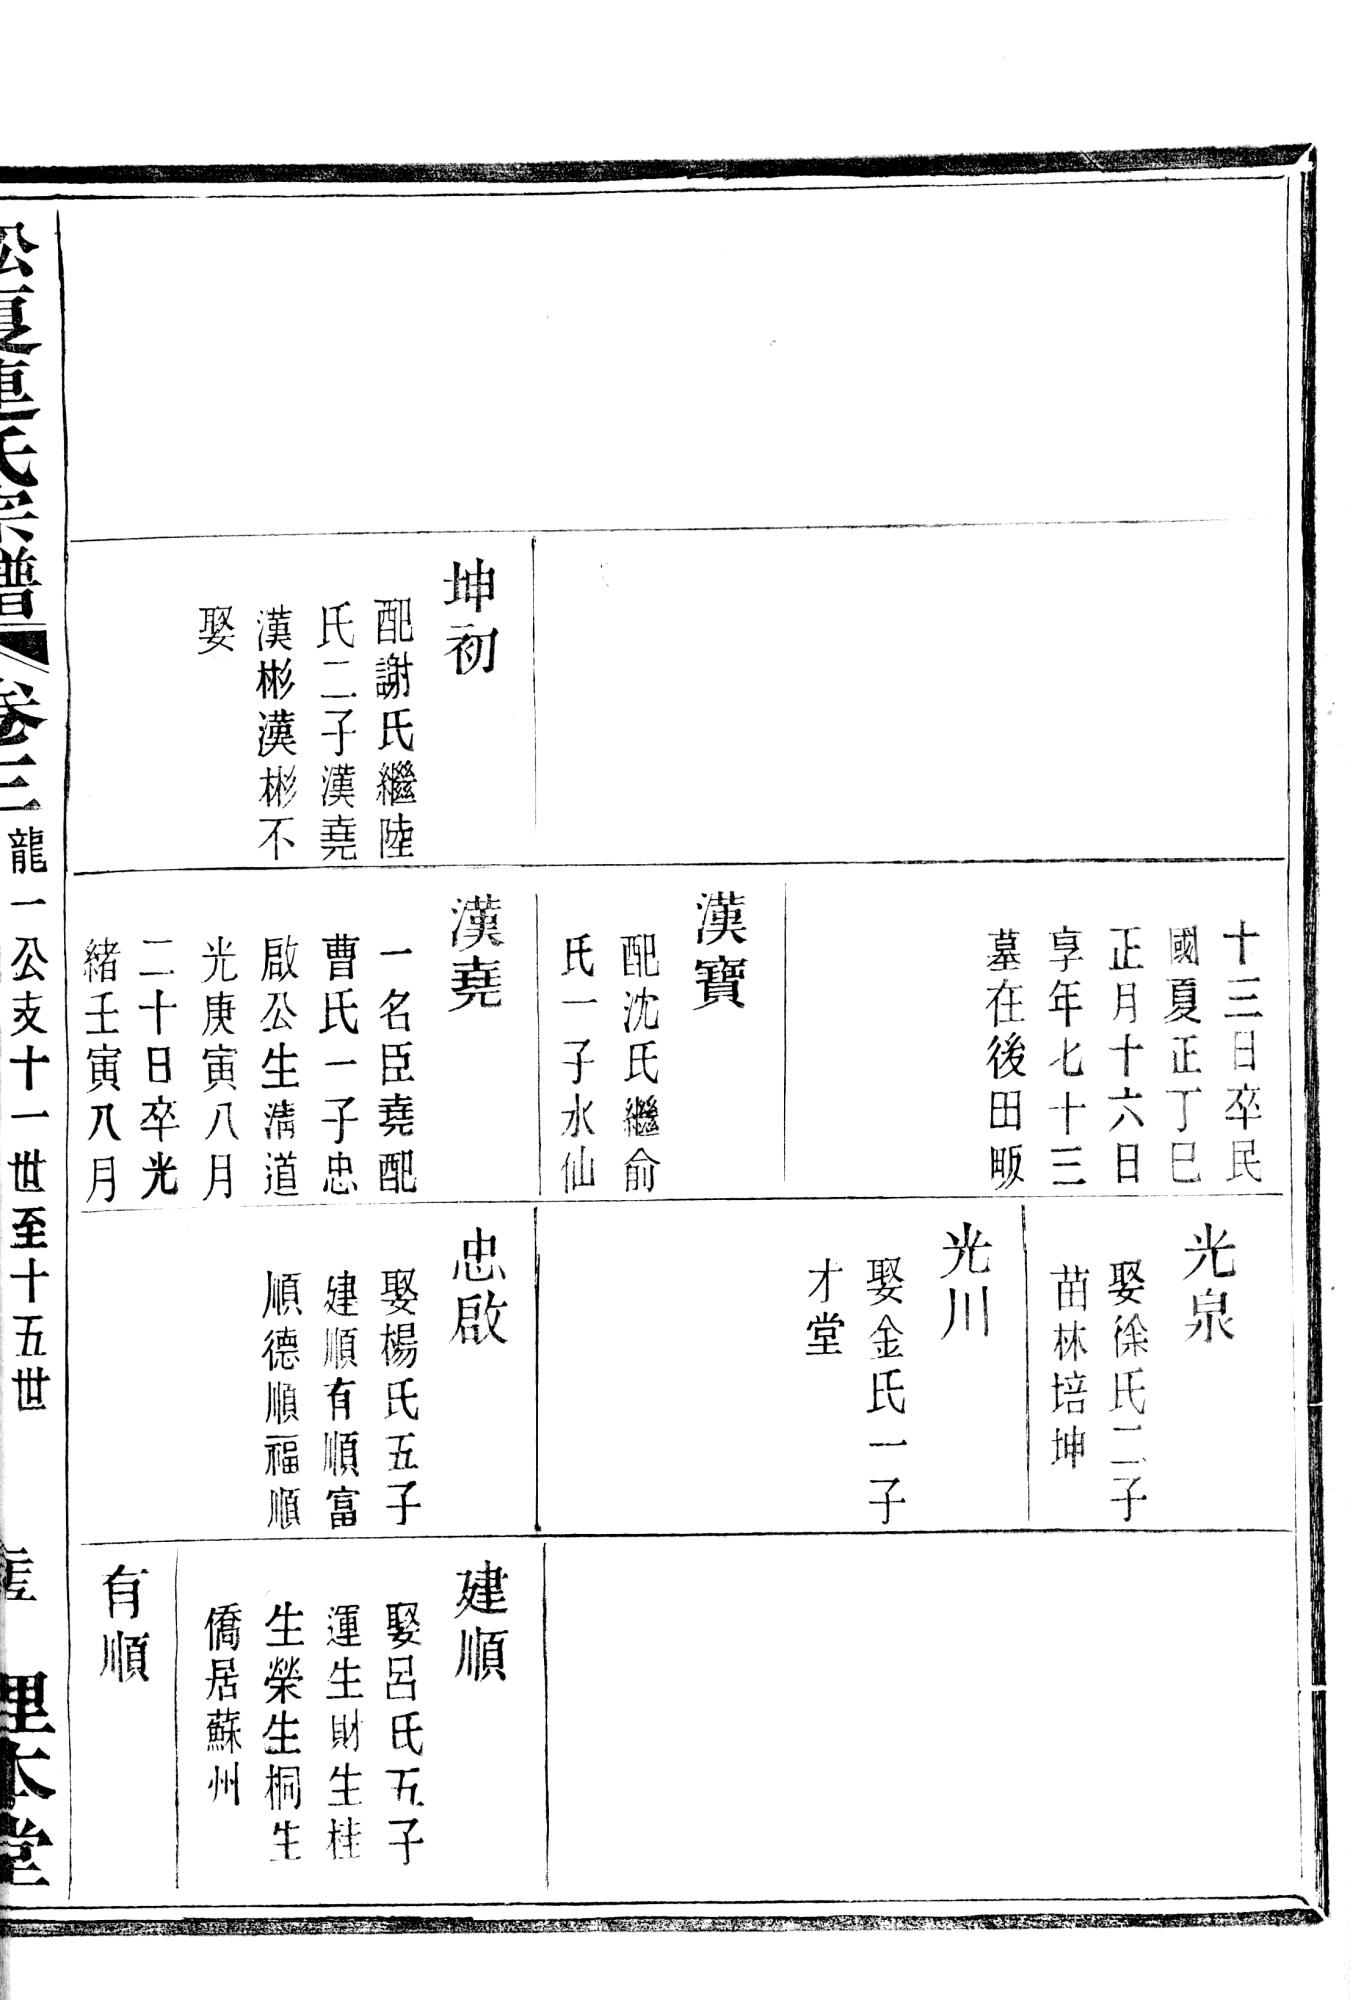 坤初
配謝氏繼陸
氏二子漢堯
漢彬漢彬不
娶
十三日卒民
國夏正丁巳
正月十六日
享年七十三
墓在後田畈
漢寶
配沈氏繼俞
氏一子水仙
漢堯
一名臣堯配
曹氏一子忠
啟公生清道
光庚寅八月
二十日卒光
緒壬寅八月
光泉
娶徐氏二子
苗林培坤
光川
娶金氏一子
才堂
忠啟
娶楊氏五子
建順有順富
順德順福順
建順
娶呂氏五子
運生財生桂
生榮生桐生
僑居蘇州
有順
松夏連氏宗譜 卷三 龍一公支十一世至十五世 理本堂